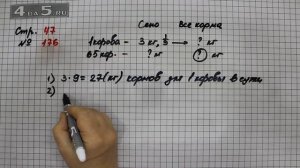 4 ≡ 5
Стр. 47
№ 176
Сено Все корма
1 корова – 3 кг, 1/9 → ? кг
65 кор. – ? кг ? кг
1) 3 · 9 = 27 (кг) кормов для 1 коровы в сутки
2)